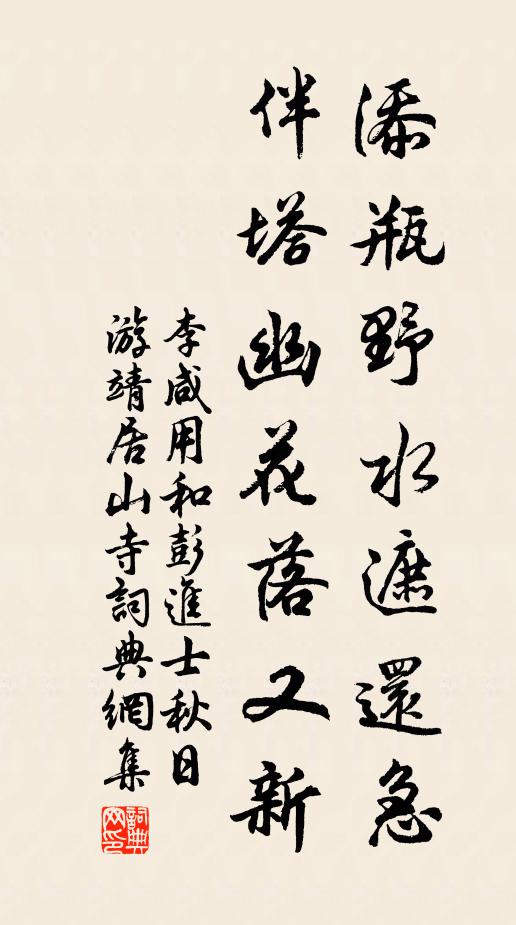 添瓶野水遮還急
伴塔幽花落又新
李咸用和彭進士秋日
游靖居山寺詞典網集
詞典网印